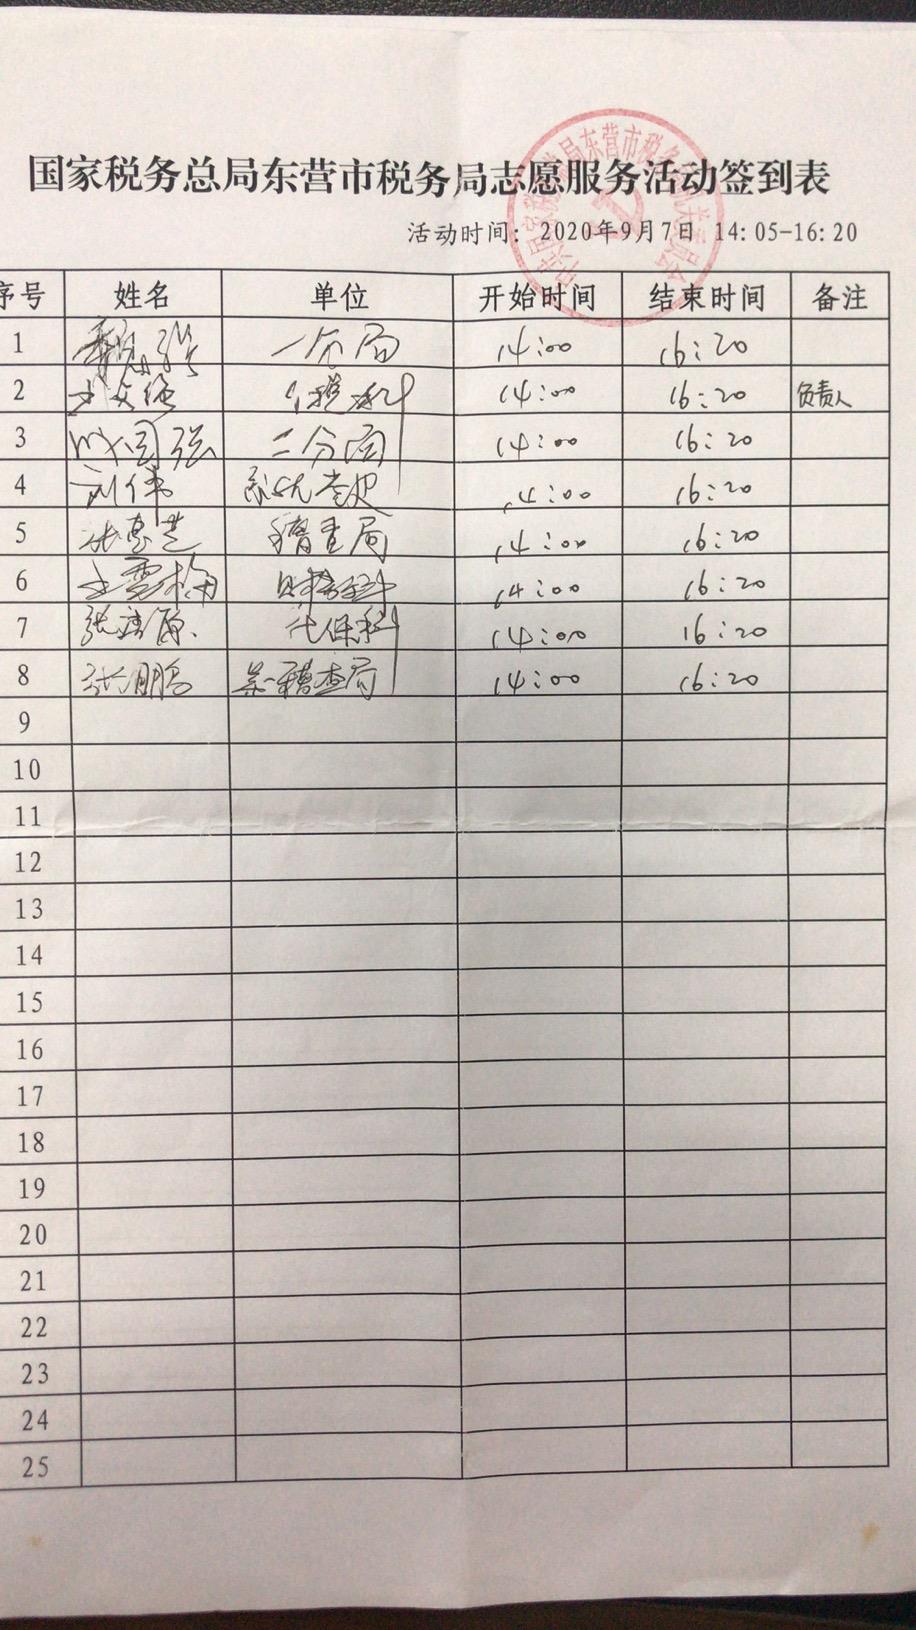 国家税务总局东营市税务局志愿服务活动签到表
活动时间: 2020年9月7日 14:05-16:20
序号 姓名 单位 开始时间 结束时间 备注
1 一分局 14:00 16:20
2 14:00 16:20 负责人
3 国强 二分局 14:00 16:20
4 刘伟 14:00 16:20
5 张惠芝 稽查局 14:00 16:20
6 王雪梅 财务科 14:00 16:20
7 张清源 社保科 14:00 16:20
8 张鹏 第一稽查局 14:00 16:20
9
10
11
12
13
14
15
16
17
18
19
20
21
22
23
24
25